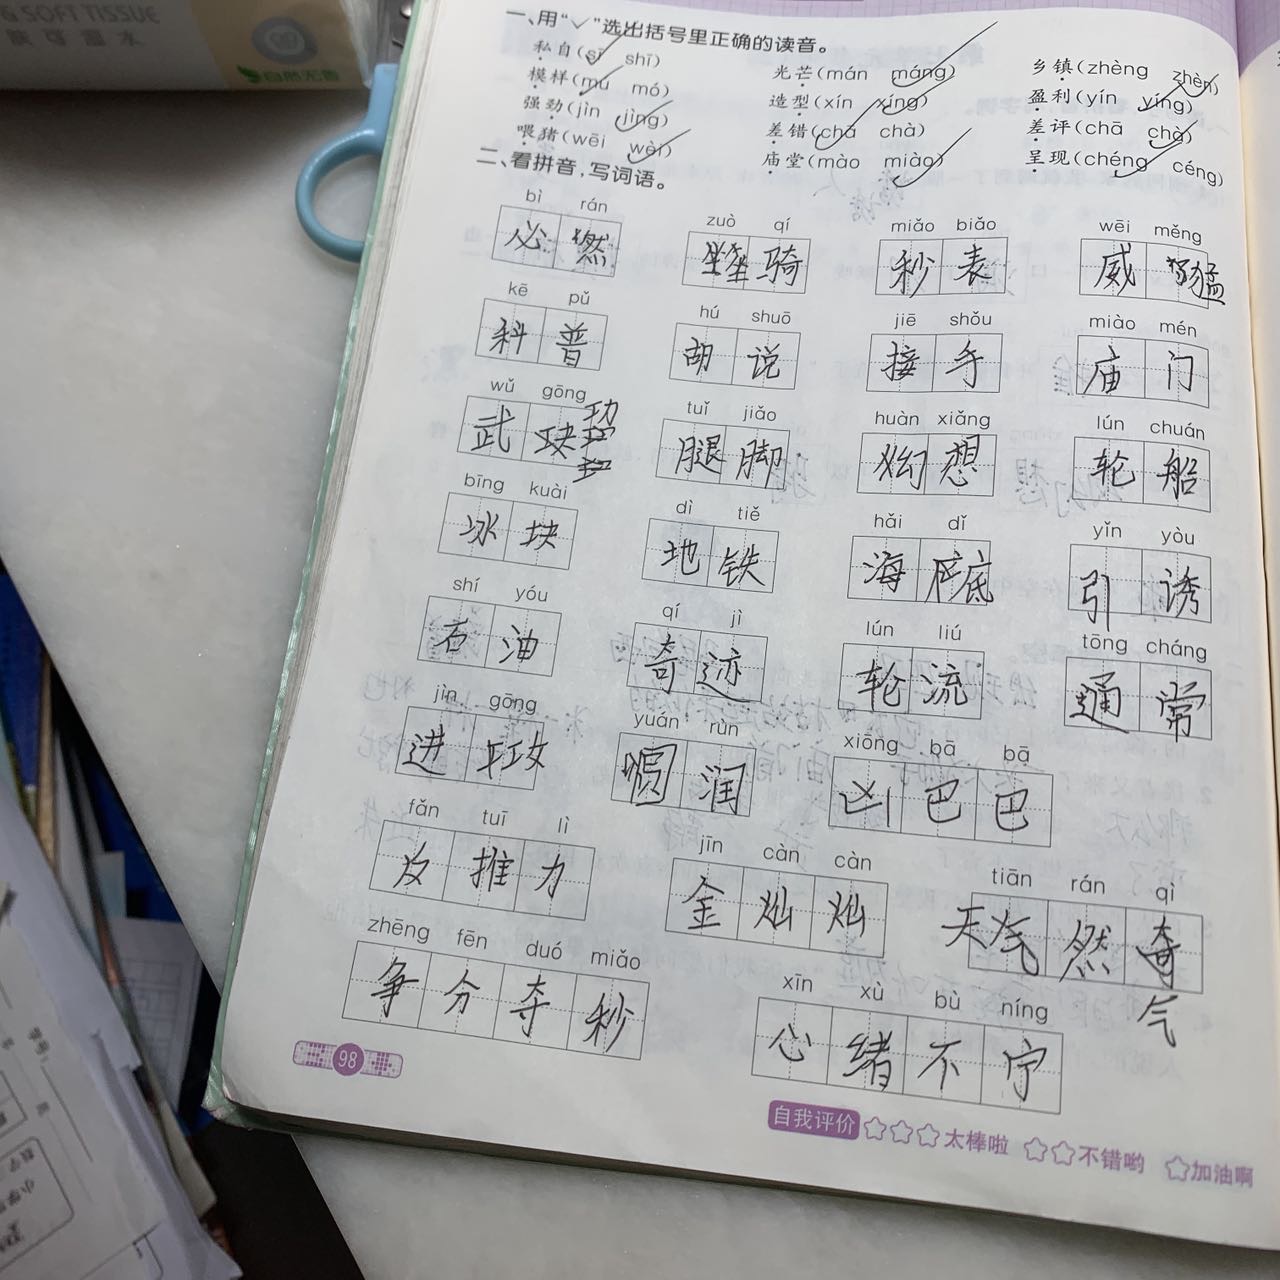 G SOFT TISSUE
肤可湿水
自然无香
一、用“✓”选出括号里正确的读音。
私自(sī shī) 光芒(mán máng) 乡镇(zhèng zhèn)
模样(mú mó) 造型(xín xíng) 盈利(yín yíng)
强劲(jìn jìng) 差错(chā chà) 差评(chā chà)
喂猪(wēi wèi) 庙堂(mào miào) 呈现(chéng céng)
二、看拼音,写词语。
bì rán zuò qí miǎo biǎo wēi měng
必 然 坐 骑 秒 表 威 猛
kē pǔ hú shuō jiē shǒu miào mén
科 普 胡 说 接 手 庙 门
wǔ gōng tuǐ jiǎo huàn xiǎng lún chuán
武 功 腿 脚 幻 想 轮 船
bīng kuài dì tiě hǎi dǐ yǐn yòu
冰 块 地 铁 海 底 引 诱
shí yóu qí jì lún liú tōng cháng
石 油 奇 迹 轮 流 通 常
jìn gōng yuán rùn xiōng bā bā
进 攻 圆 润 凶 巴 巴
fǎn tuī lì jīn càn càn tiān rán qì
反 推 力 金 灿 灿 天 然 气
zhēng fēn duó miǎo xīn xù bù níng
争 分 夺 秒 心 绪 不 宁
98
自我评价 太棒啦 不错哟 加油啊